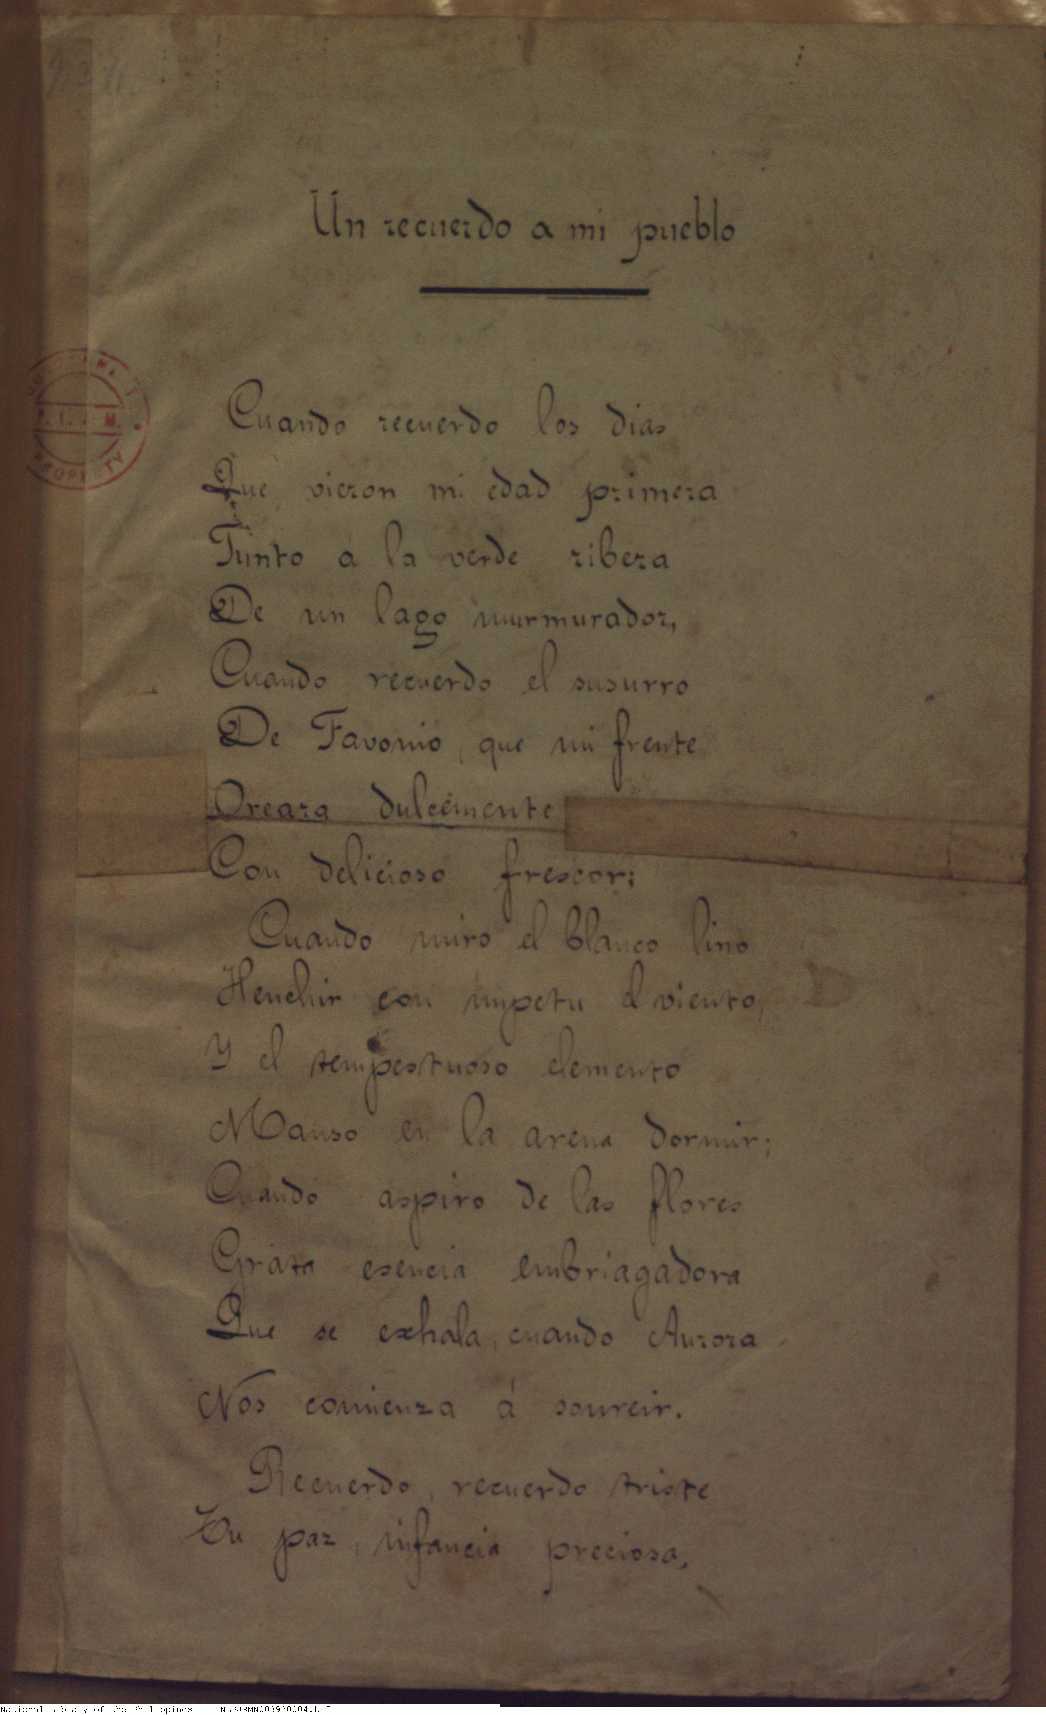 Un recuerdo a mi pueblo
Cuando recuerdo los dias
Que vieron mi edad primera
Junto á la verde ribera
De un lago murmurador,
Cuando recuerdo el susurro
De Favonio, que mi frente
Oreara dulcemente
Con delicioso frescor;
Cuando miro el blanco lino
Henchir con impetu el viento,
Y el tempestuoso elemento
Manso en la arena dormir;
Cuando aspiro de las flores
Grata esencia embriagadora
Que se exhala, cuando Aurora
Nos comienza á sonreir.
Recuerdo, recuerdo triste
Tu paz, infancia preciosa,
PROPERTY
National Library of the Philippines